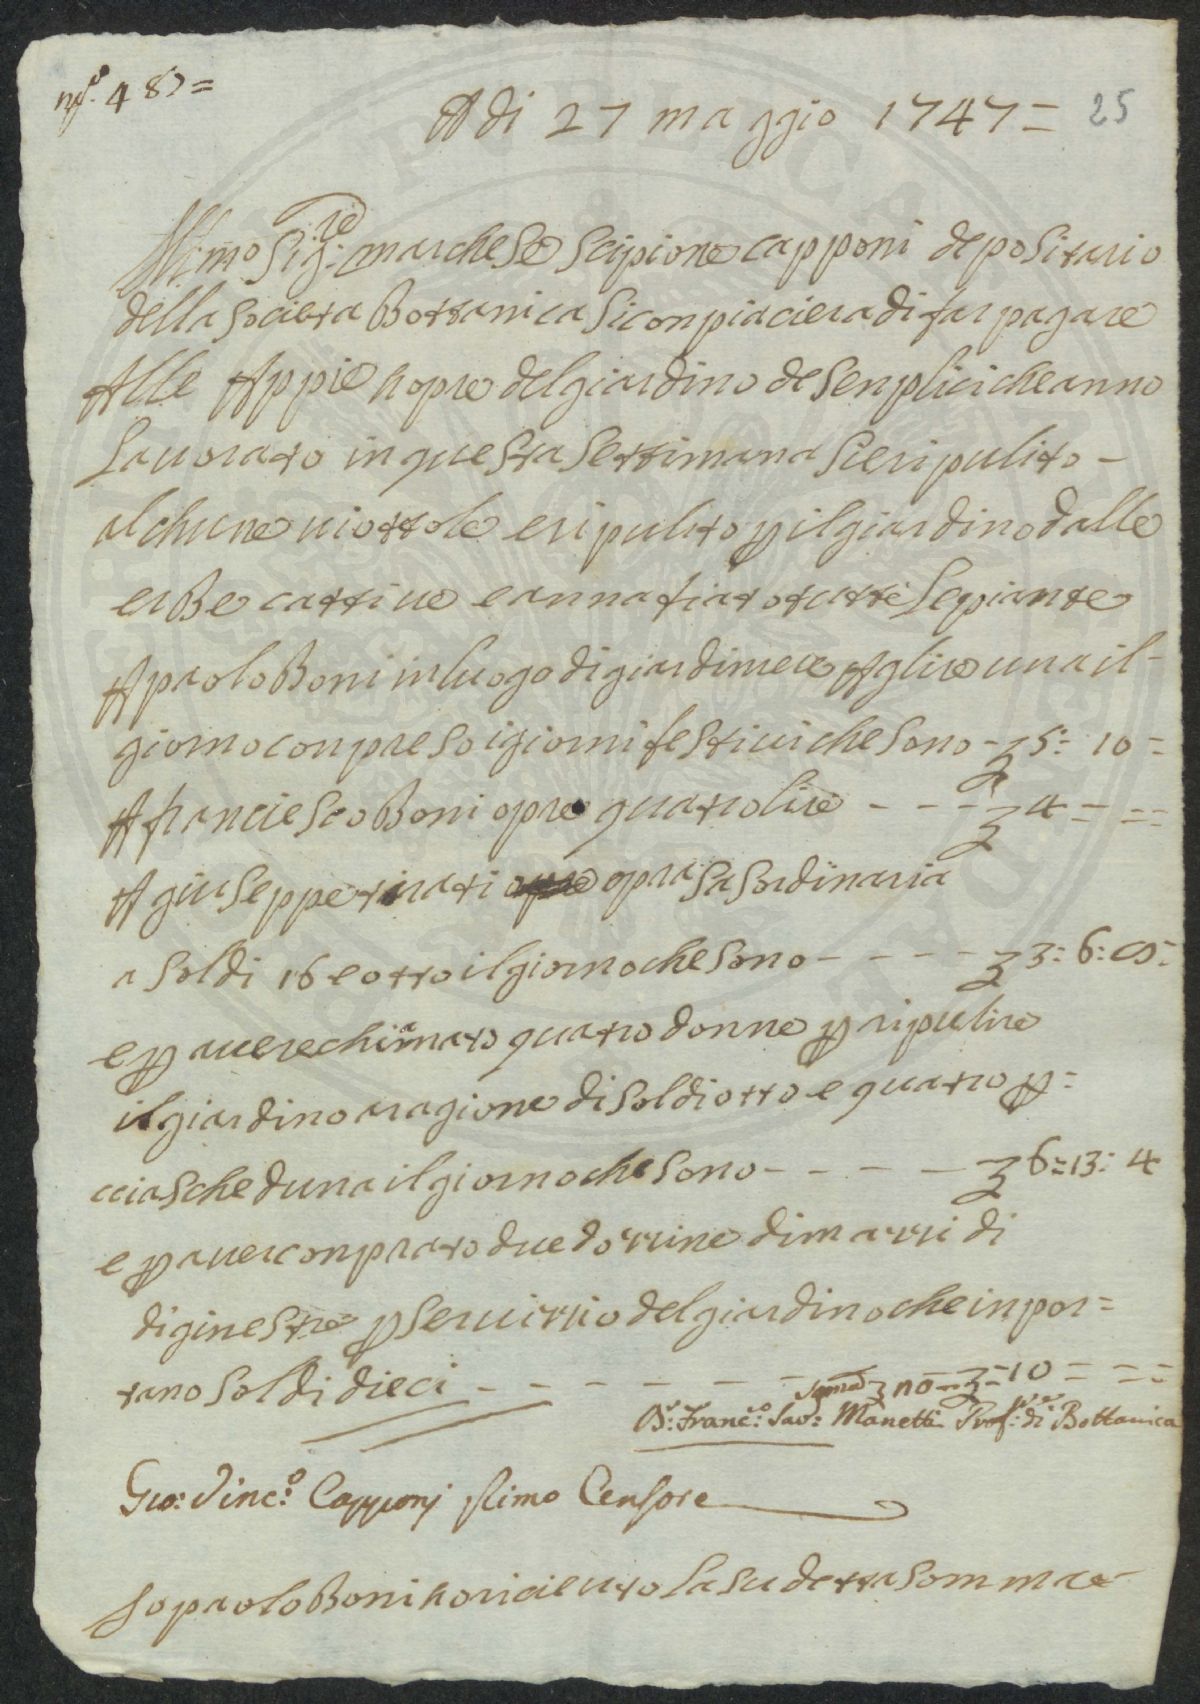 nº. 48
A di 27 maggio 1747= 25
Ill:mo Sig:re marchese Scipione capponi depositario
della Societa Bottanica Si conpiaciera di far pagare
Alle Appie hopre del giardino de Senplici che anno
Lauorato in questa Settimana Sie ripulito -
alchune uiottole e ripulito p il giardino dalle
erBe cattiue e annafiato tutte Le piante
A paolo Boni in luogo di giardiniere A lire una il-
giorno conpreso i giorni festiui che Sono - 5: 10 =
A franciesco Boni opre quatro lire - - - 4 = ==
A giuseppe tirati opra Sasordinaria
a Soldi 16 e otto il giorno che Sono - - - - 3: 6: 8:
e p auere chiamato quatro donne p ripulire
il giardino a ragione di Soldi otto e quatro p=
ciascheduna il giorno che Sono - - - - 6: 13: 4
e p auer conprato due dozzine di mazzi di
di ginestre p seruizzio del giardino che inpor=
tano Soldi dieci - - - - - - - 10 = ==
D:r Franc:o Sav: Manetti Prof:re di Bottanica
Gio: Vinc:o Capponj Primo Censore
Io paolo Boni ho riceuto La Sudetta Somma